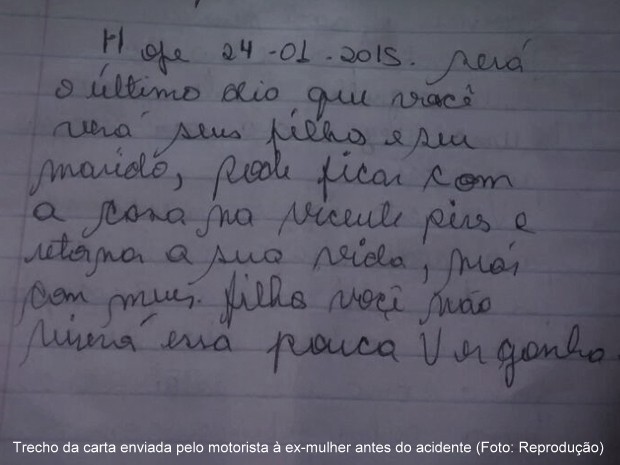 Hoje 24-01-2015. será
o último dia que você
verá seus filho e seu
marido, pode ficar com
a casa na vicente pires e
retorna a sua vida, mas
com meus filho você não
viverá essa pouca Vergonha
Trecho da carta enviada pelo motorista à ex-mulher antes do acidente (Foto: Reprodução)